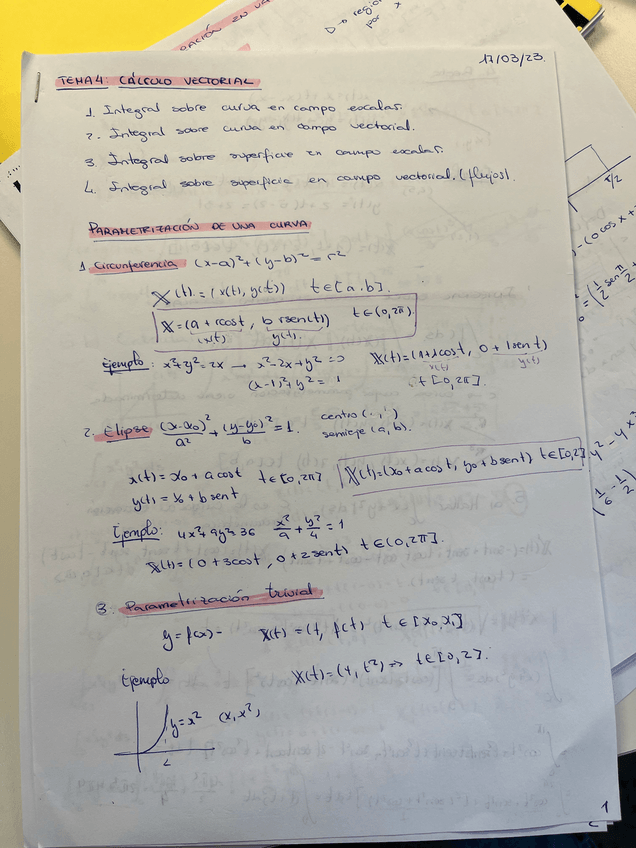 17/03/23.
TEMA 4: CÁLCULO VECTORIAL
1. Integral sobre curva en campo escalar.
2. Integral sobre curva en campo vectorial.
3 Integral sobre superficie en campo escalar.
4. Integral sobre superficie en campo vectorial. (flujos).
PARAMETRIZACIÓN DE UNA CURVA
1 Circunferencia (x-a)²+(y-b)²=r²
X(t)=(x(t), y(t)) t∈[a,b].
X=(a+rcost, b rsen(t)) t∈(0,2π).
(x(t) y(t).
Ejemplo: x²+y²=2x → x²-2x+y² => X(t)=(1+1cost, 0+1sent)
x(t) y(t)
(x-1)²+y²=1 t[0,2π].
2. Elipse (x-x0)²/a² + (y-y0)²/b =1. centro(·,·)
semieje (a,b).
x(t)=x0+acost t∈[0,2π] X(t)=(x0+acost, y0+bsent) t∈[0,2]
y(t)=y0+bsent
Ejemplo: 4x²+9y²=36 x²/9+y²/4=1
X(t)=(0+3cost, 0+2sent) t∈(0,2π].
3. Parametrización trivial
y=f(x)- X(t)=(t, f(t) t∈[x0,x1]
Ejemplo X(t)=(t, t²)=> t∈[0,2].
y=x² (x,x²)
2
1
D→ región
por x
π/2